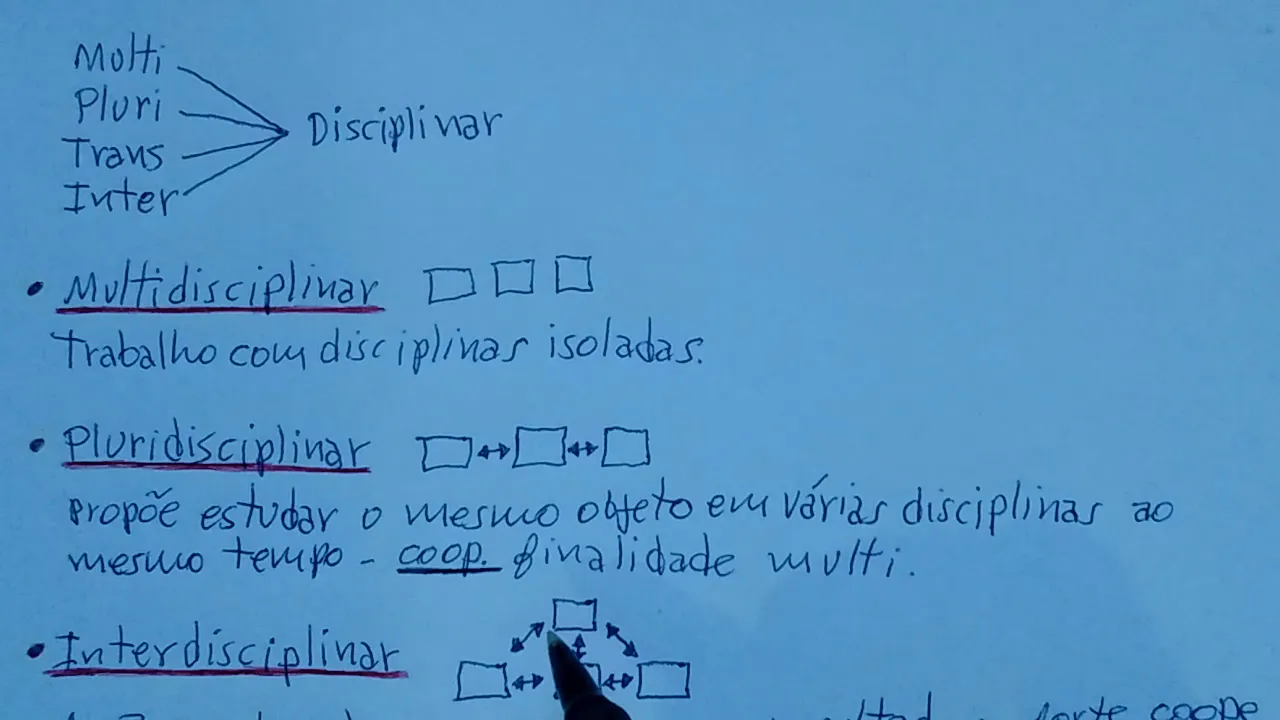 Multi
Pluri
Trans
Inter
Disciplinar
• Multidisciplinar
Trabalho com disciplinas isoladas.
• Pluridisciplinar
Propõe estudar o mesmo objeto em várias disciplinas ao
mesmo tempo - coop. finalidade multi.
• Interdisciplinar
forte coope